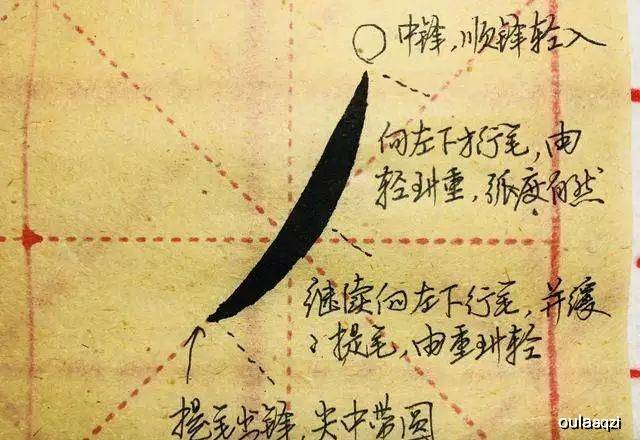 中锋，顺锋轻入
向左下方行笔，由
轻到重，弧度自然
继续向左下行笔，并缓
缓提笔，由重到轻
提笔出锋，尖中带圆
oulaaqzi